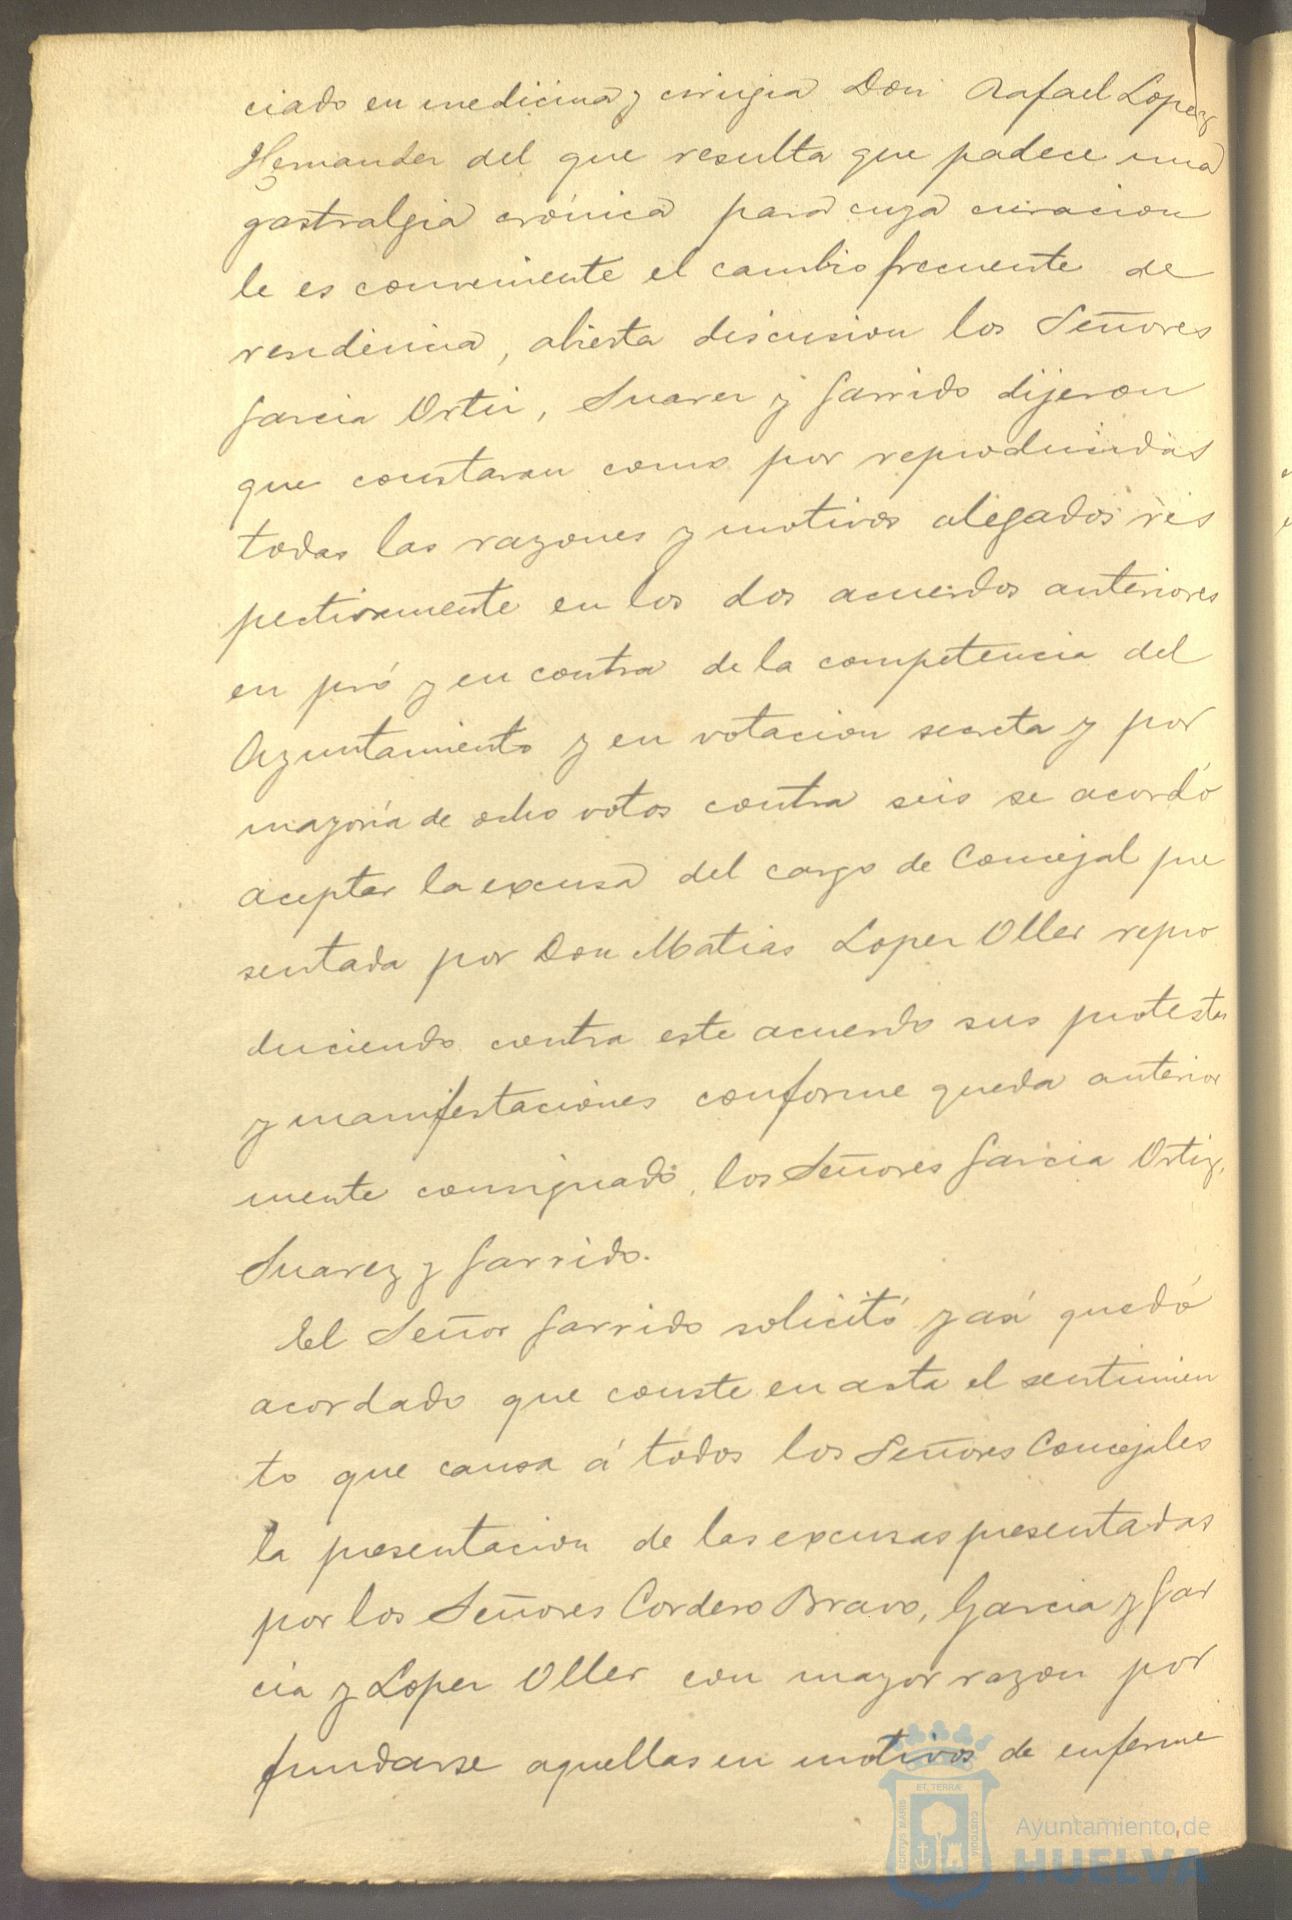 ciado en medicina y cirugia Don Rafael Lopez
Hernander del que resulta que padece una
gastralgia crónica para cuya curacion
le es conveniente el cambio frecuente de
residencia, abierta discusion los Señores
Garcia Ortiz, Suarez y Garrido dijeron
que constaran como por reproducidas
todas las razones y motivos alegados res
pectivamente en los dos acuerdos anteriores
en pró y en contra de la competencia del
Ayuntamiento y en votacion secreta y por
mayoria de ocho votos contra seis se acordó
aceptar la excusa del cargo de Concejal pre
sentada por Don Matias Loper Oller repro
duciendo contra este acuerdo sus protestas
y manifestaciones conforme queda anterior
mente consignado, los Señores Garcia Ortiz,
Suarez y Garrido.
El Señor Garrido solicitó y asi quedó
acordado que conste en acta el sentimien
to que causa á todos los Señores Concejales
la presentacion de las excusas presentadas
por los Señores Cordero Bravo, Garcia y Gar
cia y Loper Oller con mayor razon por
fundarse aquellas en motivos de enferme
PORTUS MARIS ET TERRÆ CUSTODIA
Ayuntamiento de
HUELVA